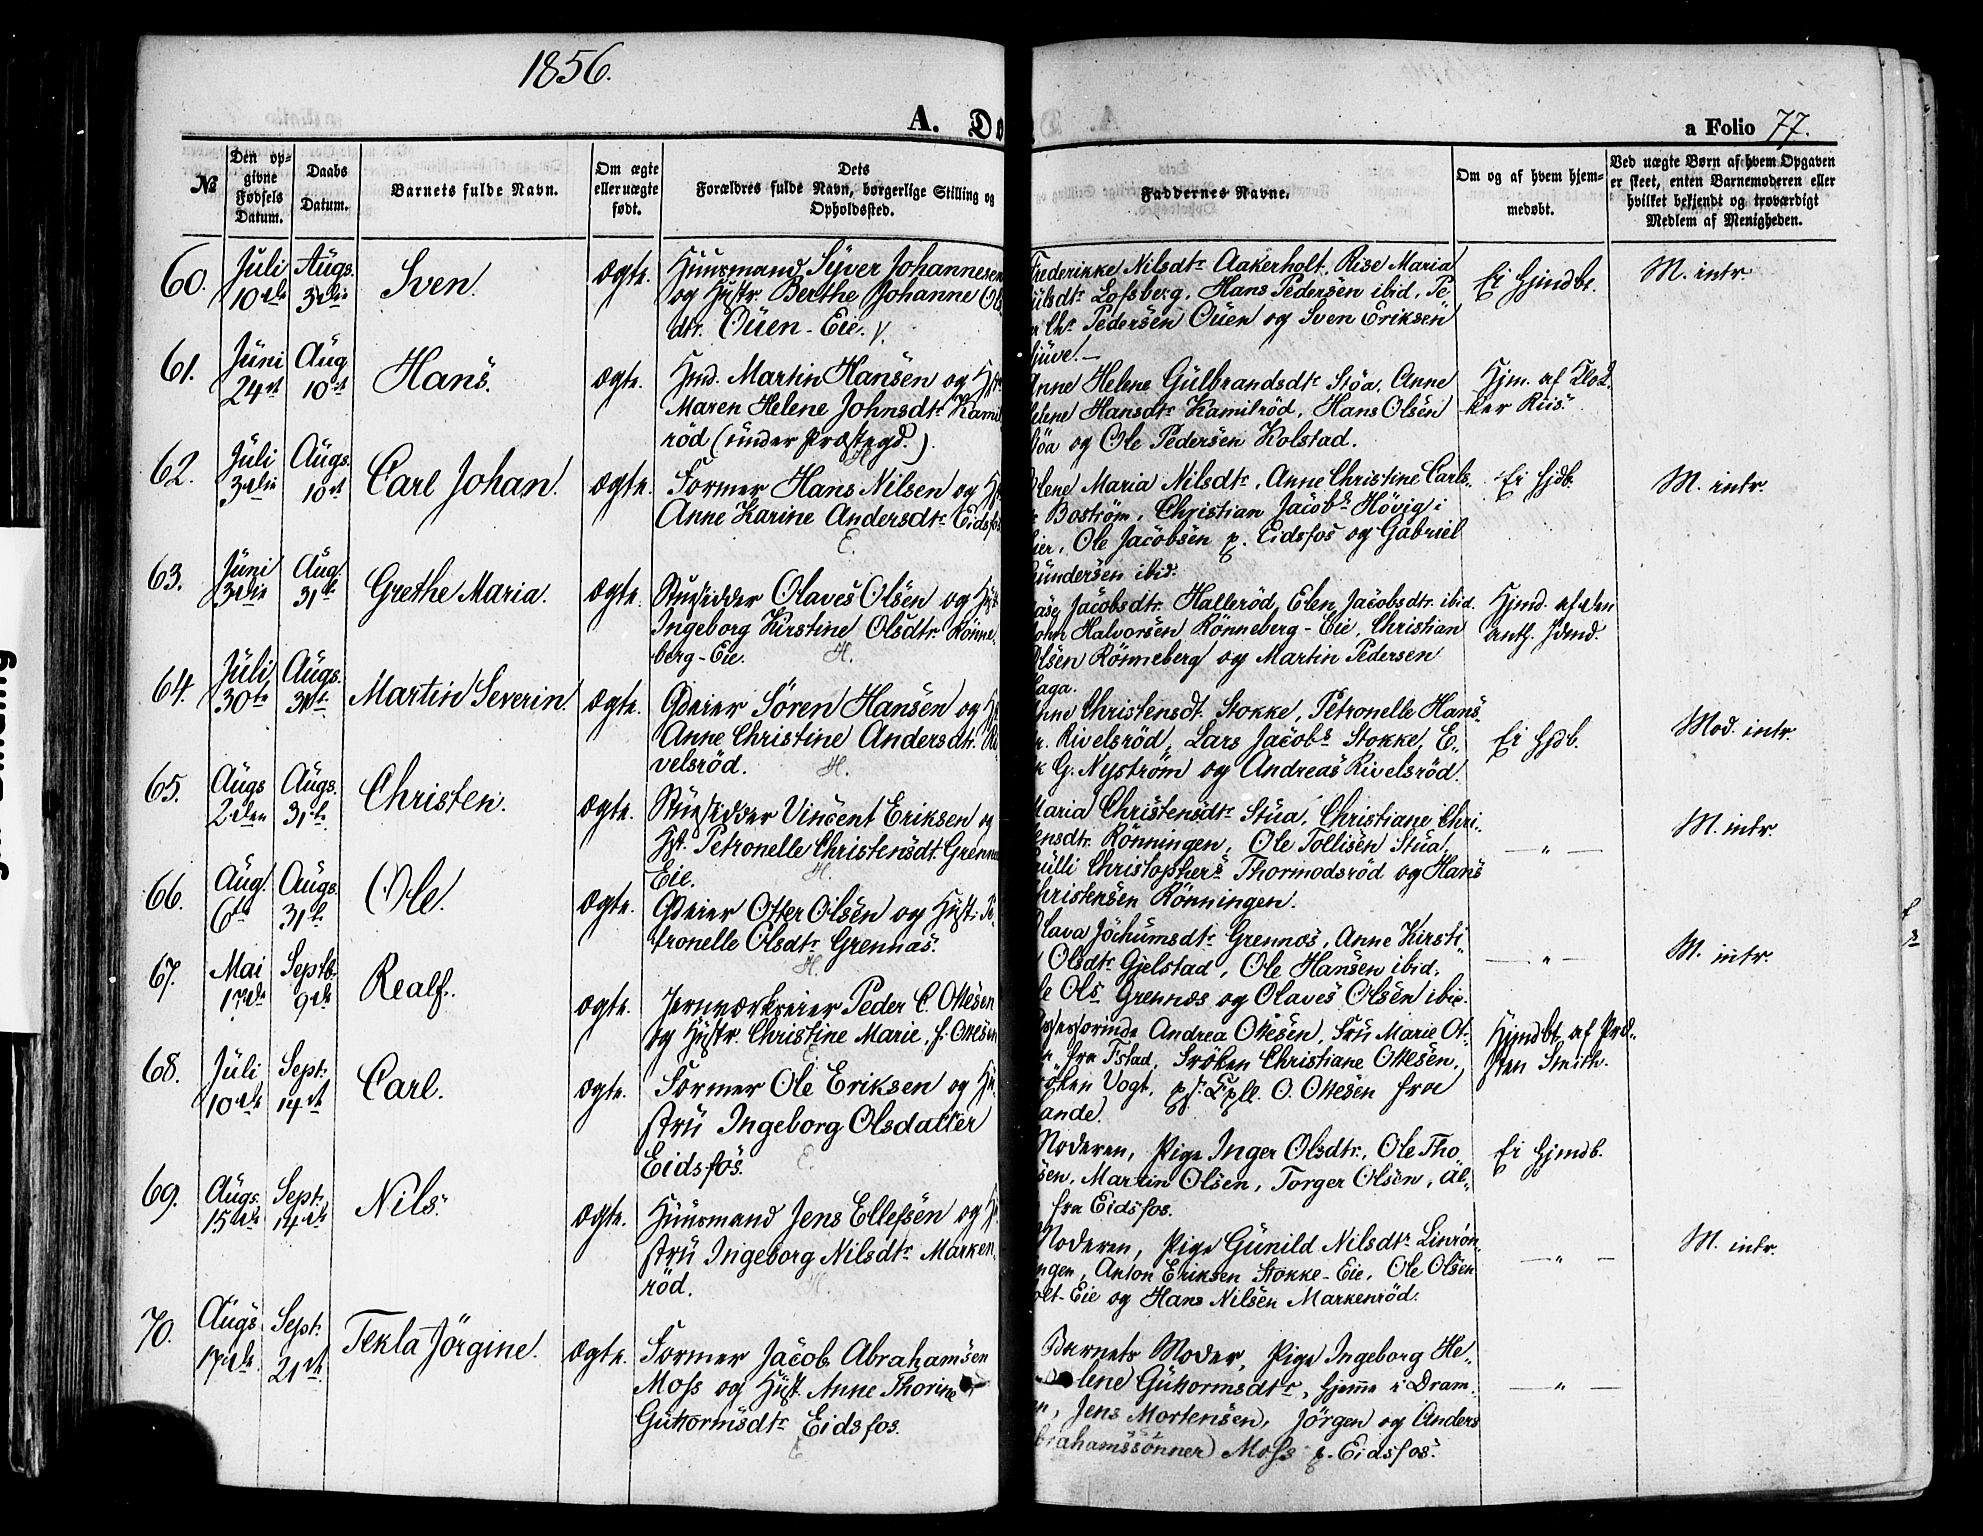 1856.
A. Do
a Folio 77.
№
Den op-
givne
Fødsels
Datum.
Daabs
Datum.
Barnets fulde Navn.
Om ægte
eller uægte
født.
Dets
Forældres fulde Navn, borgerlige Stilling og
Opholdssted.
Faddernes Navne.
Om og af hvem hjem-
medøbt.
Ved uægte Børn af hvem Opgaven
er skeet, enten Barnemoderen eller
hvilket bekjendt og troværdigt
Medlem af Menigheden.
60.
Juli
10de
Augs.
3die
Sven.
ægte.
Huusmand Syver Johannesen
og Hustr. Berthe Johanne Ols
dtr. Ouen-Eie.
Frederikke Nilsdtr Aakerholt, Rise Maria
ilsdtr Lofsberg, Hans Pedersen ibid, Pe-
Chr Pedersen Ouen og Sven Eriksen
Ei Hjmdbt.
M. intr
61.
Juni
24de
Aug
10de
Hans.
ægte.
Hmd. Martin Hansen og Hstr
Maren Helene Johnsdtr Kamil
röd (under Præstegd.)
H.
Anne Helene Gulbrandsdtr Stöa, Anne
Helene Hansdtr Kamilröd, Hans Olsen
töa og Ole Pedersen Kolstad.
Hjm. af Klok-
ker Riis.
62.
Juli
3die
Augs.
10de
Carl Johan.
ægte.
Former Hans Nilsen og H
Anne Karine Andersdtr Eidsfos
E.
Olene Maria Nilsdtr, Anne Christine Carls-
Boström, Christian Jacobs Hövig i
ier, Ole Jacobsen p. Eidsfos og Gabriel
undersen ibid.
Ei hjdb.
M. intr.
63.
Juni
3die
Aug
31te
Grethe Maria.
ægte.
Huusidder Olaves Olsen og Hst
Ingeborg Kirstine Olsdtr Rönne-
berg-Eie.
H.
Jacobsdtr. Halleröd, Elen Jacobsdtr. ibid.
John Halvorsen Rönneberg-Eie, Christian
Olsen Rönneberg og Martin Pedersen
Haga.
Hjmd. af den
64.
Juli
30te
Augs.
31te
Martin Severin.
ægte.
Gdeier Sören Hansen og H
Anne Christine Andersdtr. Ri
velsröd.
H.
Anne Christensdt. Stokke, Petronelle Hans-
r. Rivelsröd, Lars Jacobs Stokke, E-
k G. Nyström og Andreas Rivelsröd.
Ei hjdb.
Mod. intr.
65.
Augs
2den
Augs.
31te
Christen.
ægte.
Huusidder Vincent Eriksen og
Hst. Petronelle Christensdt. Grennes
Eie.
H.
Maria Christensdtr Stua, Christiane Chri-
ensdtr. Rönningen, Ole Tollisen Stua,
ulli Christophers Thormodsröd og Hans
Christensen Rönningen.
— " —
M. intr.
66.
Aug.
6te
Augs.
31te
Ole.
ægte.
Gdeier Otter Olsen og Hust. Pe-
tronelle Olsdtr Grennas.
H.
Olava Jochumsdtr Grennos, Anne Kirsti-
Olsdtr Gjelstad, Ole Hansen ibid,
le Ols Grennes og Olaves Olsen ibid.
— " —
M. intr.
67.
Mai
17de
Septb.
9de
Realf.
ægte.
Jernværkseier Peder C. Ottesen
og Hustr. Christine Marie, f. Ottesen
E.
Andrea Ottesen, Fru Marie Ot-
fra Fstad, Fröken Christiane Ottesen,
röken Vogt, O. Ottesen fra
ande.
Hjmdbt. af Præ-
sten Smith.
68.
Juli
10de
Sept.
14de
Carl.
ægte.
Former Ole Eriksen og Hu-
stru Ingeborg Olsdatter
Eidsfos.
E.
Moderen, Pige Inger Olsdtr, Ole Tho
sen, Martin Olsen, Torger Olsen, al-
fra Eidsfos.
Ei hjmdb.
69.
Augs.
15de
Sept.
14de
Nils.
ægte.
Huusmand Jens Ellefsen og Hu
stru Ingeborg Nilsdtr Marken
röd.
H.
Moderen, Pige Gunild Nilsdtr Linrön-
ngen, Anton Eriksen Stokke-Eie, Ole Olsen
olt-Eie og Hans Nilsen Markenröd.
— " —
M. intr.
70.
Augs
17de
Sept.
21de
Tekla Jörgine.
ægte.
Former Jacob Abrahamsen
Moss og Hust. Anne Thorine
Guttormsdtr Eidsfos.
E
Barnets Moder, Pige Ingeborg He-
lene Guttormsdtr, hjemme i Dram-
, Jens Mortensen, Jörgen og Anders
brahamssönner Moss p. Eidsfos.
— " —